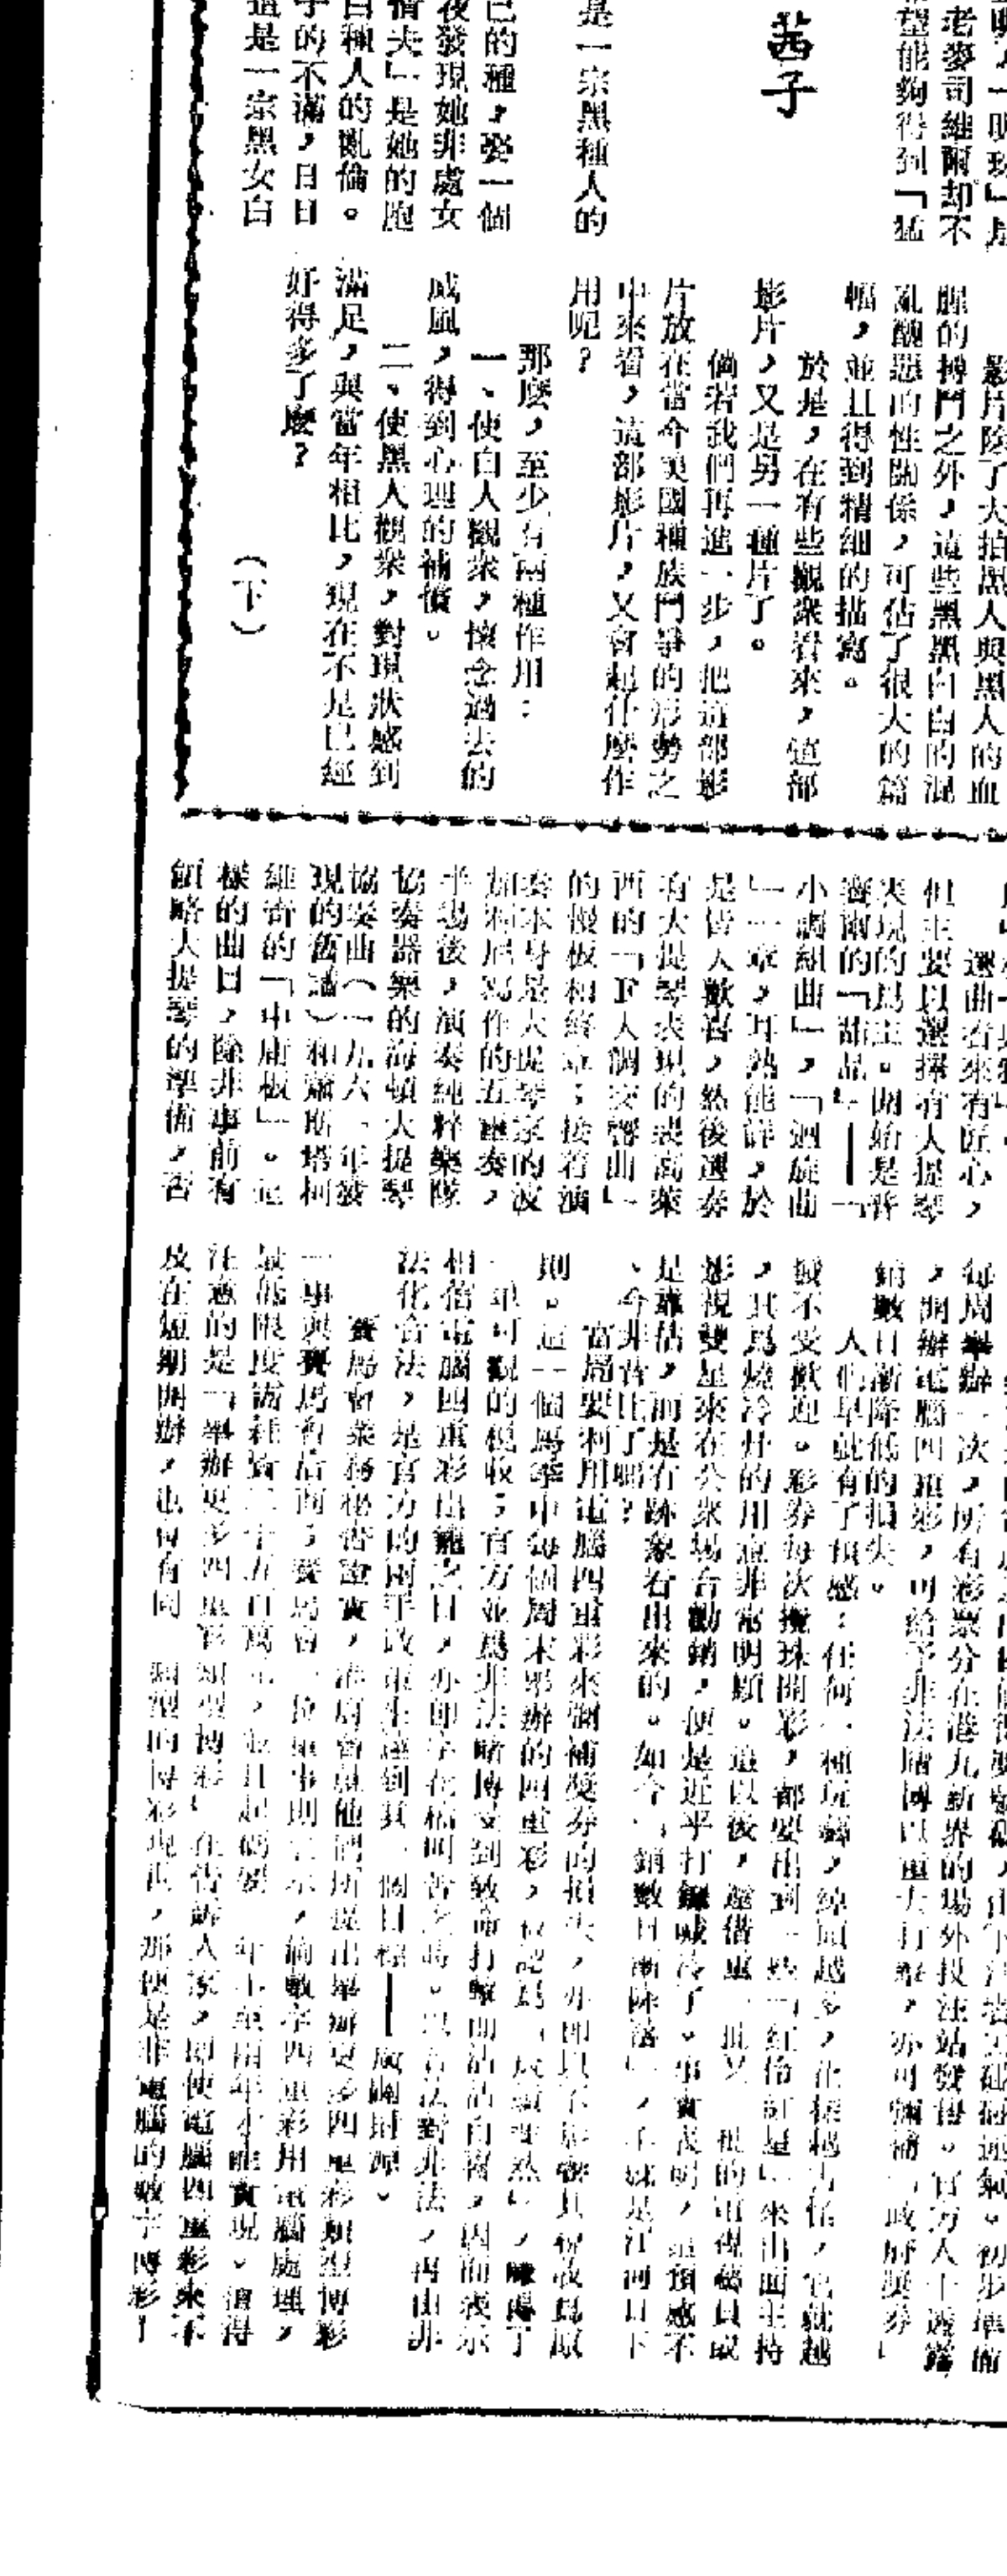 是,一明珠」是
老麥司維爾却不
望能夠得到「猛
茜子
是一宗黑種人的
己的種,娶一個
夜發現她非處女
情夫」是她的胞
白種人的亂倫。
子的不滿,日日
這是一宗黑女白
影片除了大拍黑人與黑人的血
腥的搏鬥之外,這些黑黑白白的混
亂醜惡的性關係,可佔了很大的篇
幅,並且得到精細的描寫。
於是,在有些觀衆看來,這部
影片,又是另一種片了。
倘若我們再進一步,把這部影
片放在當今美國種族鬥爭的形勢之
中來看,這部影片,又會起什麼作
用呢?
那麼,至少有兩種作用:
一、使白人觀衆,懷念過去的
威風,得到心理的補償。
二、使黑人觀衆,對現狀感到
滿足,與當年相比,現在不是已經
好得多了麼?
(下)
選曲看來有匠心,
但主要以選擇有大提琴
表現的爲主。開始是普
賽爾的「甜品」——「
小調組曲」,「迴旋曲
」一章,耳熟能詳,於
是皆大歡喜,然後選奏
有大提琴表現的裴高萊
西的「F大調交響曲」
的慢板和終章;接着演
奏本身是大提琴家的波
加利尼寫作的五重奏,
半場後,演奏純粹樂隊
協奏器樂的海頓大提琴
協奏曲(一九六一年發
現的舊譜)和蕭斯塔柯
維奇的「中庸板」。這
樣的曲目,除非事前有
領略大提琴的準備,否
每周舉辦一次,所有彩票分在港九新界的場外投注站發售。官方人士透露
,開辦電腦四重彩,可給予非法賭博以重大打擊,亦可彌補「政府獎券」
銷數日漸降低的損失。
人們早就有了預感:任何一種玩藝,綽頭越多,花樣越古怪,它就越
發不受歡迎。彩券每次攪珠開彩,都要出到一些「紅伶紅星」來出面主持
,其爲燒冷灶的用意非常明顯。這以後,還借重一批又一批的電視藝員或
影視雙星來在公衆場合勸銷,便是近乎打鑼喊冷了。事實表明,這預感不
是靠估,而是有跡象看出來的。如今「銷數日漸降落」,不就是江河日下
、今非昔比了嗎?
當局要利用電腦四重彩來彌補獎券的損失,亦即以不影響其稅收爲原
則。這一個馬季中每個周末舉辦的四重彩,被認爲「成績斐然」,賺得了
一筆可觀的稅收;官方並爲非法賭博受到致命打擊而沾沾自喜,因而表示
相信電腦四重彩出籠之日,亦即字花檔叫苦之時。以合法對非法,再由非
法化合法,是官方的兩手政策去達到其一個目標——廣闢財源。
賽馬會業務秘書證實,港府曾就他們所提出舉辦更多四重彩類型博彩
一事與賽馬會洽商;賽馬會一位董事則表示,倘數字四重彩用電腦處理,
最低限度需耗資二十五百萬元,並且起碼要一年半至兩年才能實現。值得
注意的是「舉辦更多四重彩類型博彩」在告訴人家,即使電腦四重彩未不
及在短期開辦,也會有同類型的博彩現世,那便是非電腦的數字博彩!